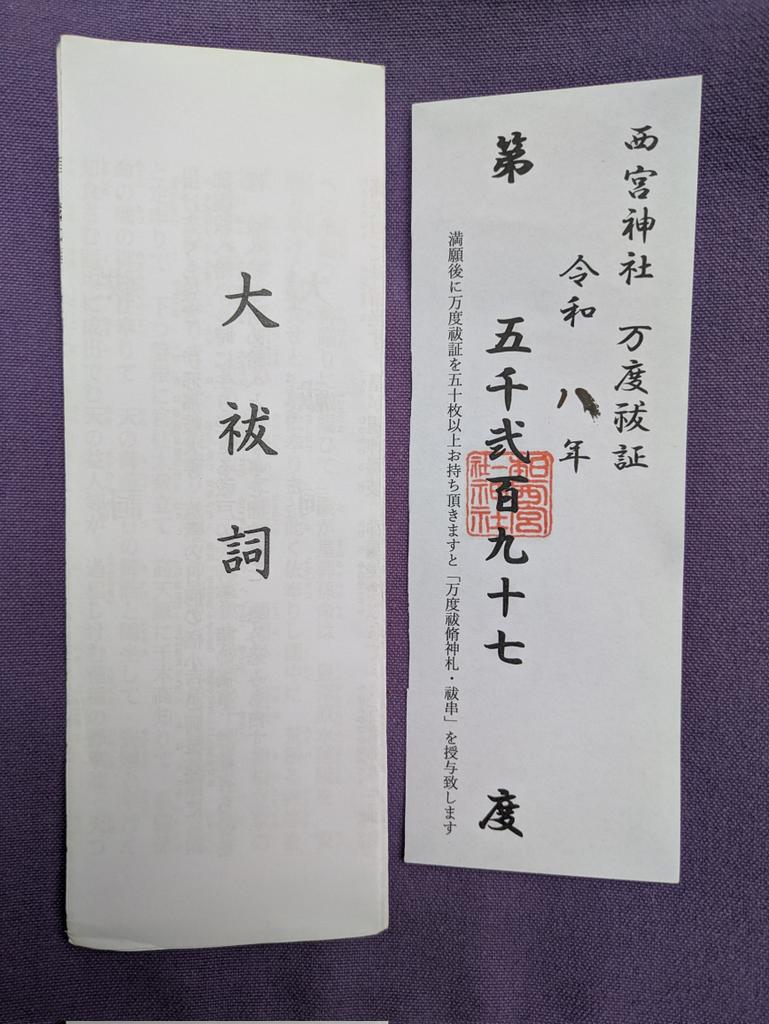 西宮神社 万度祓証
令和 八 年
第 五千弐百九十七 度
満願後に万度祓証を五十枚以上お持ち頂きますと「万度祓脩神札・祓串」を授与致します
大祓詞